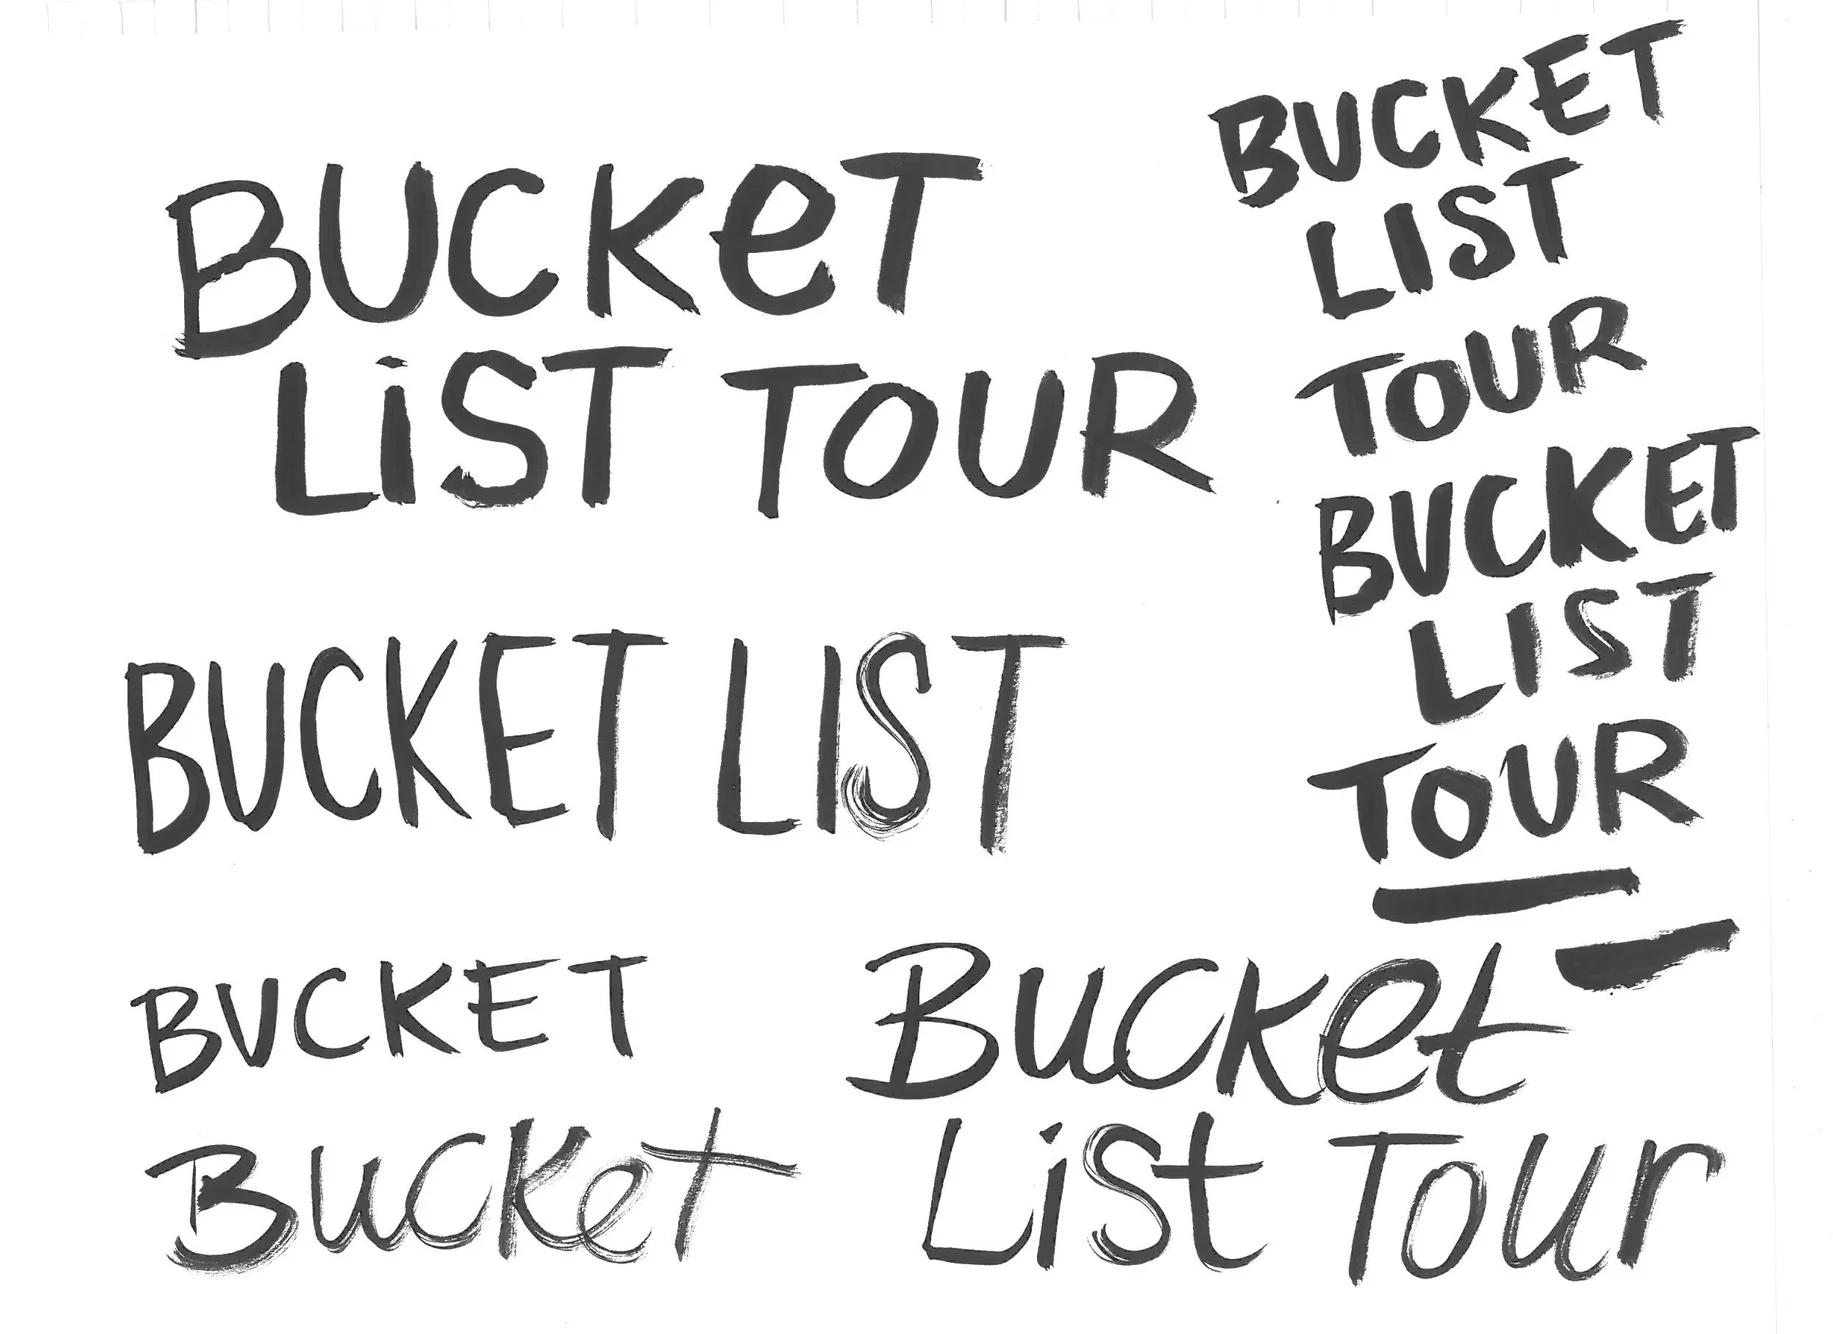 BUCKeT
LiST TOUR
BUCKET LIST
BUCKET
BucKet
BUCKET
LIST
TOUR
BUCKET
LIST
TOUR
Bucket
List Tour